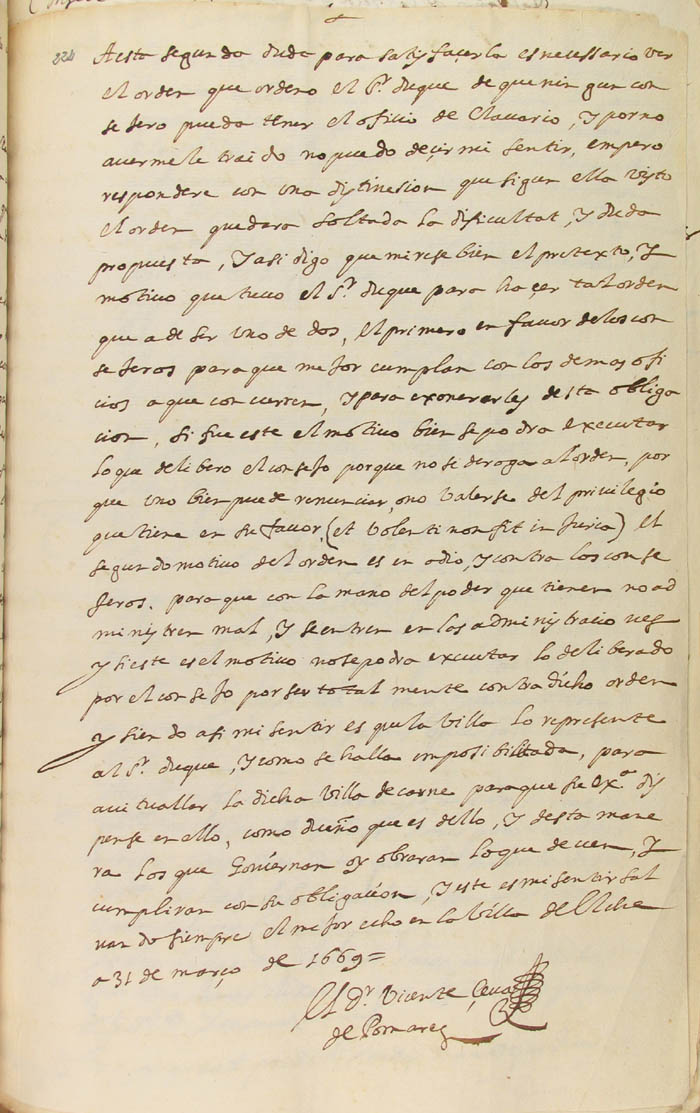 224
Aesta segunda duda para satisfaçerla es necessario ver
el orden que ordeno el S.r duque de que ningun con
sejero pueda tener el oficio de Clauario, y por no
auermele traido no puedo deçir mi sentir, empero
respondere con una distinesion que sigun ella visto
el orden quedara soltada la dificultat, y duda
propuesta, y asi digo que mirese bien el pretexto, y
motiuo que tuuo el S.r duque para haçer tal orden
que a de ser uno de dos, el primero en fauor de los con
sejeros para que mejor cumplan con los demas ofi
cios a que concurren, y para exonerarles desta obliga
cion, si fue este el motiuo bien se podra executar
lo que delibero el consejo porque no se deroga al orden, por
que uno bien puede renunciar, o no valerse del privilegio
que tiene en su fauor, (et volenti non fit injuria) el
segundo motiuo del orden es en odio, y contra los conse
jeros. para que con la mano del poder que tienen no ad
ministren mal, y se entren en las administracioues
y si este es el motiuo no se podra executar lo deliberado
por el consejo por ser totalmente contra dicho orden
y siendo asi mi sentir es qu la villa lo represente
al S.r duque, y como se halla imposibilitada, para
auituallar la dicha villa de carne para que su ex.a dis
pense en ello, como dueño que es dello, y desta mane
ra los que Gouiernan oy obraran lo que deuen, y
cumpliran con su obligacion, y este es mi sentir sal
uando siempre el mejor echo en la villa de Elche
a 31 de março de 1669=
El d.r Vicente
de Pomares